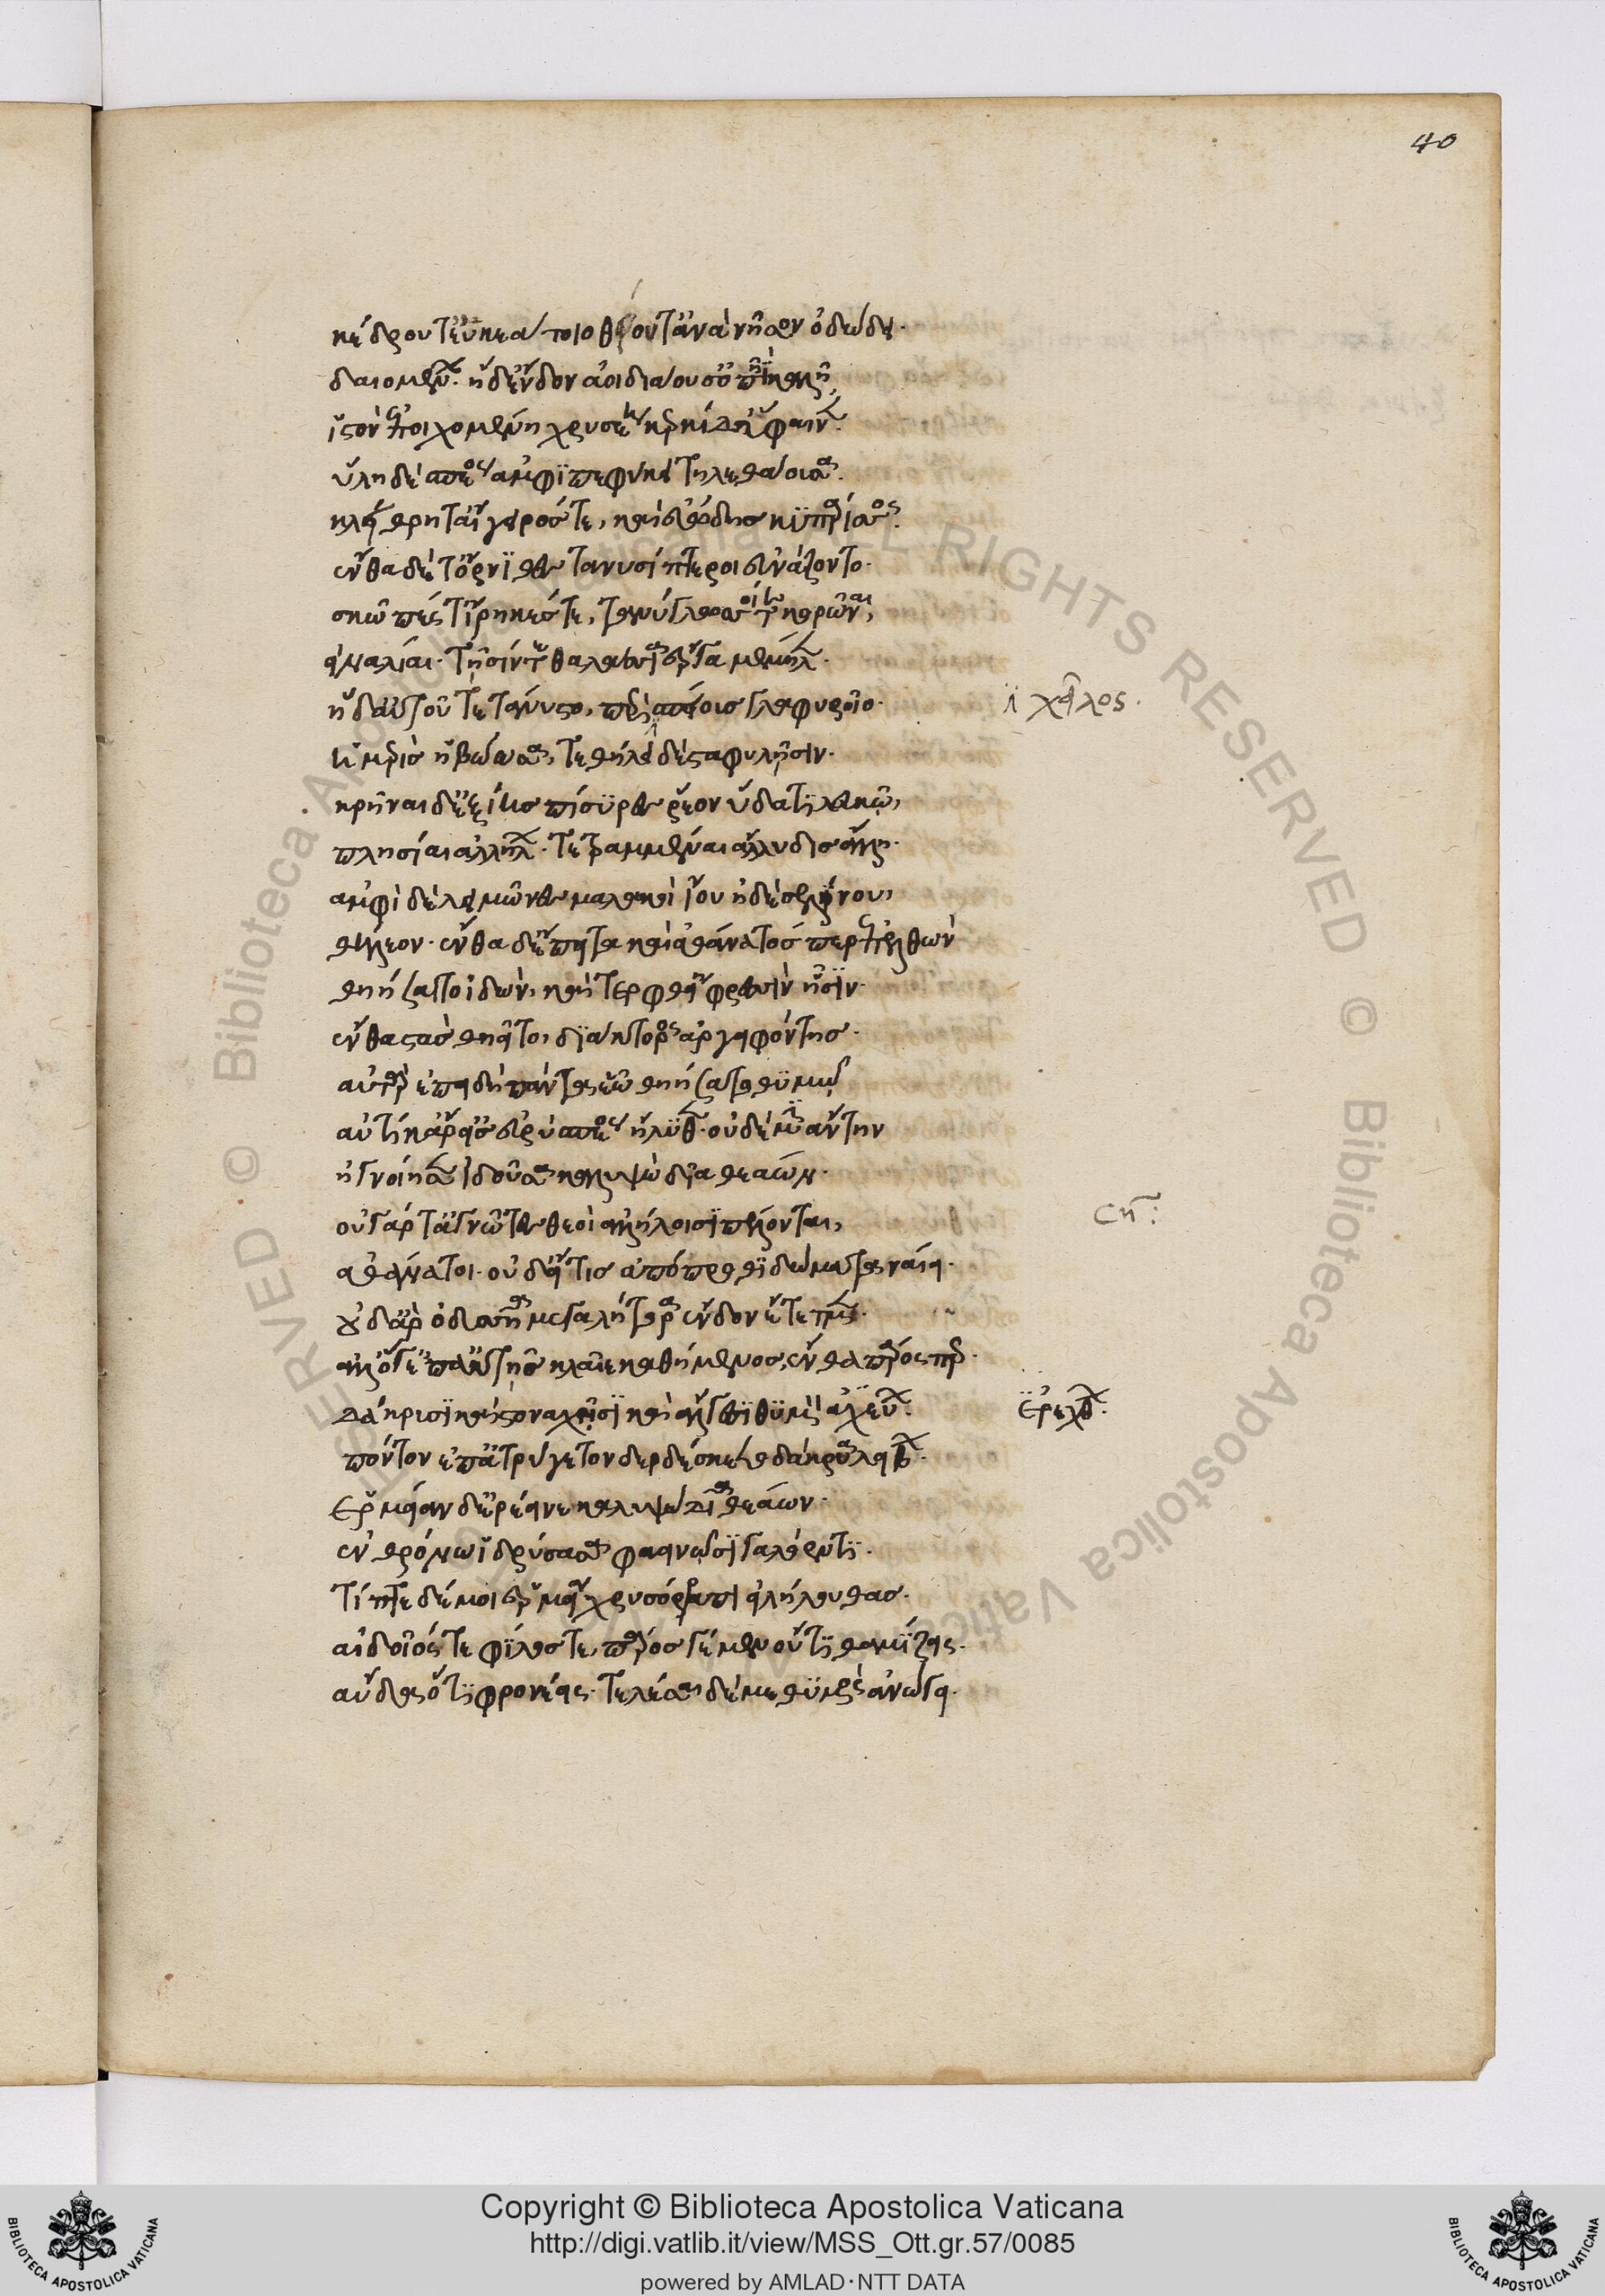 40
κέδρου τ' εὐκεάτοιο θύου τ' ἀνὰ νῆσον ὀδώδει·
δαιομένων· ἡ δ' ἔνδον ἀοιδιάουσ' ὀπὶ καλῇ
ἱστὸν ἐποιχομένη χρυσείη κερκίδ' ὕφαινεν·
ὕλη δὲ σπέος ἀμφὶ πεφύκει τηλεθάουσα·
κλήθρη τ' αἴγειρός τε, καὶ εὐώδης κυπάρισσος·
ἔνθα δέ τ' ὄρνιθες τανυσίπτεροι εὐνάζοντο·
σκῶπές τ' ἴρηκές τε, τανύγλωσσοί τε κορῶναι,
εἰνάλιαι· τῇσίν τε θαλάσσια ἔργα μέμηλεν·
ἡ δ' αὐτοῦ τετάνυστο, περὶ σπείους γλαφυροῖο·
ἡμερὶς ἡβώωσα, τεθήλει δὲ σταφυλῇσιν·
κρῆναι δ' ἑξείης πίσυρες ῥέον ὕδατι λευκῷ,
πλησίαι ἀλλήλων· τετραμμέναι ἄλλυδις ἄλλη·
ἀμφὶ δὲ λειμῶνες μαλακοὶ ἴου ἠδὲ σελίνου,
θήλεον· ἔνθα δ' ἔπειτα καὶ ἀθάνατός περ ἐπελθὼν
θηήσαιτο ἰδὼν, καὶ τερφθείη φρεσὶν ᾗσιν·
ἔνθα στὰς θηεῖτο, διάκτορος ἀργειφόντης·
αὐτὰρ ἐπειδὴ πάντα ἑῷ θηήσατο θυμῷ
αὐτίκ' ἄρ' εἰς εὐρὺ σπέος ἤλυθεν· οὐδέ μιν ἄντην
ἠγνοίησεν ἰδοῦσα καλυψὼ δῖα θεάων·
οὐ γάρ τ' ἀγνῶτες θεοὶ ἀλλήλοισι πέλονται,
ἀθάνατοι· οὐδ' εἴ τις ἀπόπροθι δώματα ναίει·
οὐδ' ἄρ' ὀδυσσῆα μεγαλήτορα ἔνδον ἔτετμεν·
ἀλλ' ὅγ' ἐπ' ἀκτῆς κλαῖε καθήμενος, ἔνθα πάρος περ·
δάκρυσι καὶ στοναχῇσι καὶ ἄλγεσι θυμὸν ἀχεύων·
πόντον ἐπ' ἀτρύγετον δερκέσκετο δάκρυα λείβων·
Ἑρμείαν δ' ἐρέεινε καλυψὼ δῖα θεάων·
ἐν θρόνῳ ἱδρύσασα φαεινῷ σιγαλόεντι·
τίπτε δέ μοι ἑρμεία χρυσόρραπι εἰλήλουθας·
αἰδοῖός τε φίλος τε, πάρος γε μὲν οὔτι θαμίζεις·
αὔδα ὅ τι φρονέεις· τελέσαι δέ με θυμὸς ἄνωγει·
ἢ χεῖλος.
ση:
ἐρέχθων.
Copyright © Biblioteca Apostolica Vaticana
http://digi.vatlib.it/view/MSS_Ott.gr.57/0085
powered by AMLAD·NTT DATA